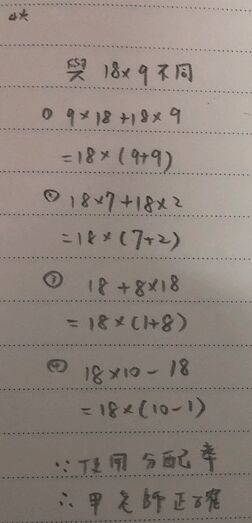 4大
與 18×9 不同
① 9×18+18×9
=18×(9+9)
② 18×7+18×2
=18×(7+2)
③ 18+8×18
=18×(1+8)
④ 18×10-18
=18×(10-1)
∵使用分配率
∴甲老師正確